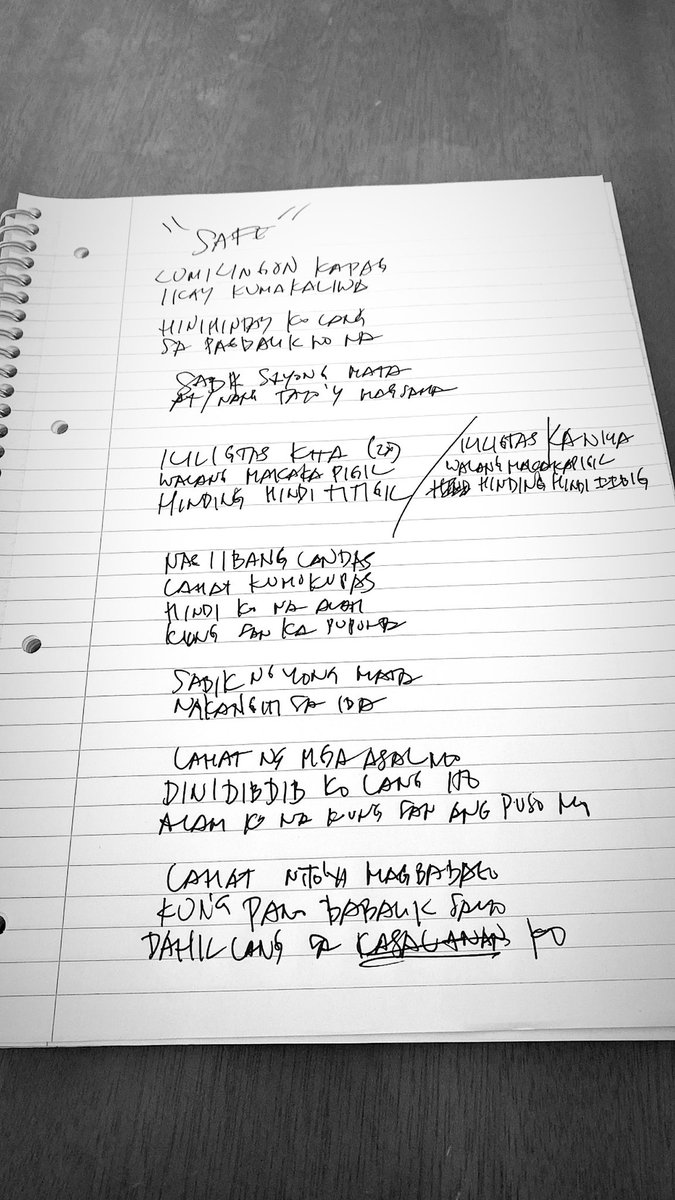 "SAFE"
LUMILINGON KAPAG
IKAY KUMAKALIWA
HINIHINTAY KO LANG
SA PAGBALIK MO NA
SABIK SIYONG MATA
AT/NANG TAYO'Y MAGSAMA
ILILIGTAS KITA (2x)
WALANG MAKAKA PIGIL
HINDING HINDI TITIGIL
ILILIGTAS KANILA
WALANG MAKAKAPIGIL
HINDING HINDI IIBIG
NAG IIBANG LANDAS
LAHAT KUMUKUPAS
HINDI KO NA ALAM
KUNG SAN KA PUPUNTA
SABIK NG YONG MATA
NAKANGITI SA IBA
LAHAT NG MGA ASAL MO
DINIDIBDIB KO LANG ITO
ALAM KO NA KUNG SAN ANG PUSO MO
LAHAT NITO'Y MAGBABAGO
KUNG PANO BABALIK SAYO
DAHIL LANG SA KASALANAN KO